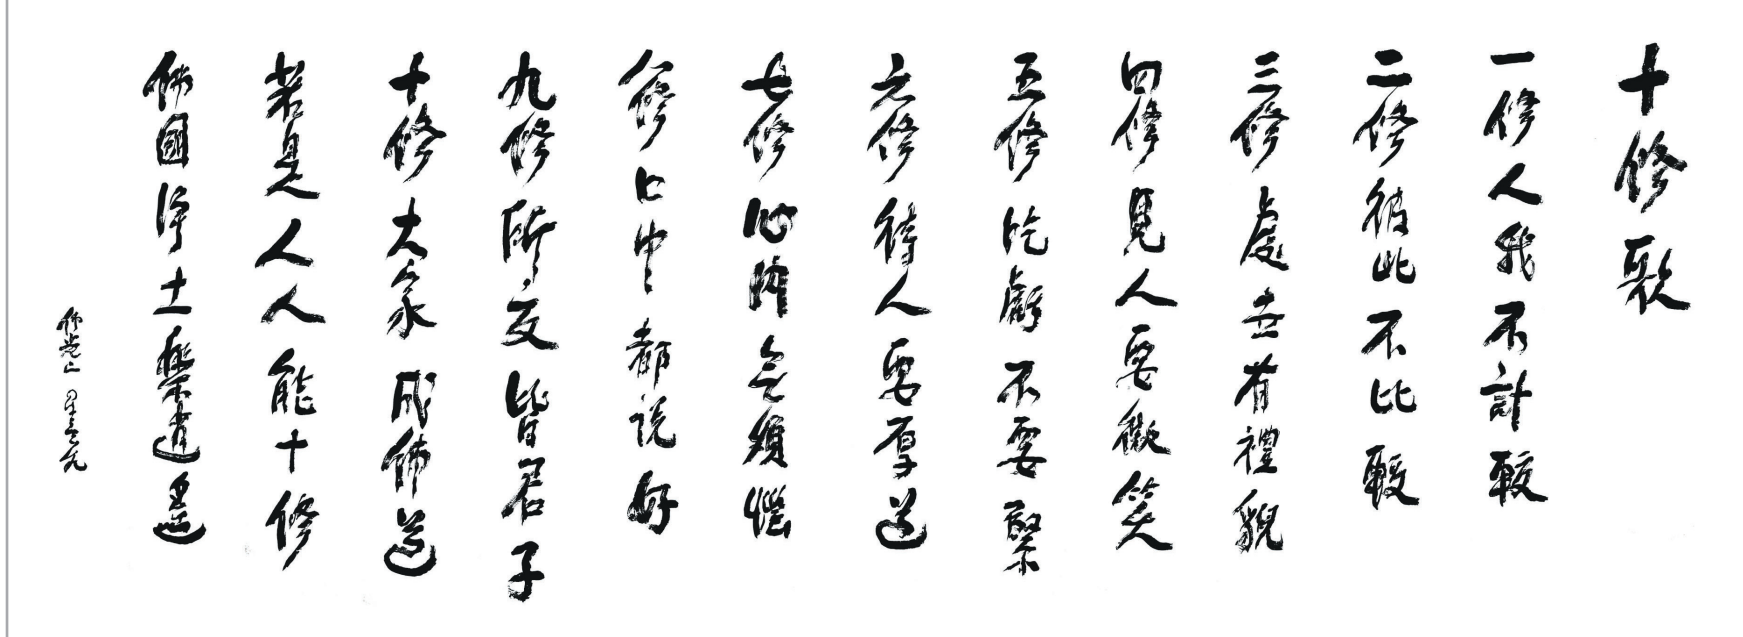 十修歌
一修人我不計較
二修彼此不比較
三修處世有禮貌
四修見人要微笑
五修吃虧不要緊
六修待人要厚道
七修心內無煩惱
八修口中都說好
九修所交皆君子
十修大家成佛道
若是人人能十修
佛國淨土樂逍遙
佛光山 星雲